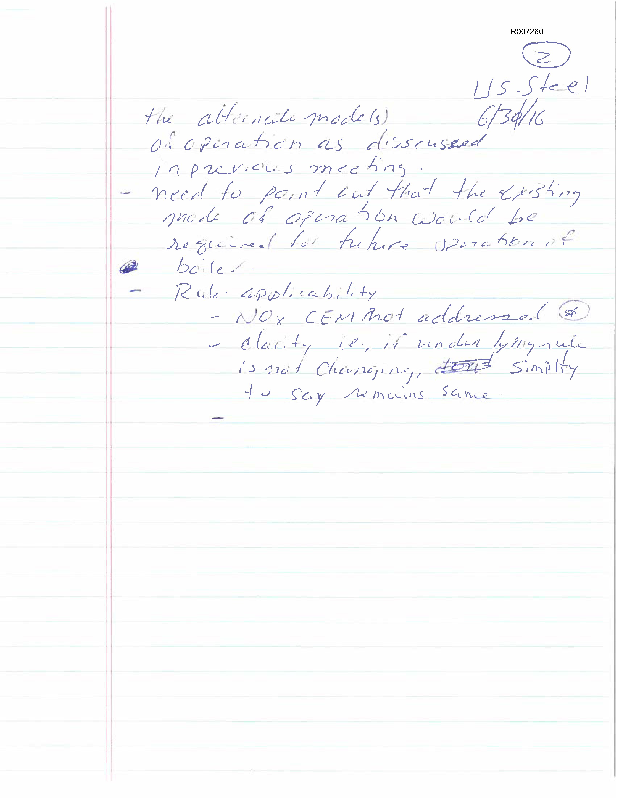 R007260
2
US Steel
6/30/16
the alternate mode(s)
of operation as discussed
in previous meeting.
- need to point out that the existing
mode of operation would be
required for future operation of
boiler
- Rule applicability
- NOx CEM not addressed *
- clarity ie., if underlying rule
is not changing, simplify
to say remains same
-